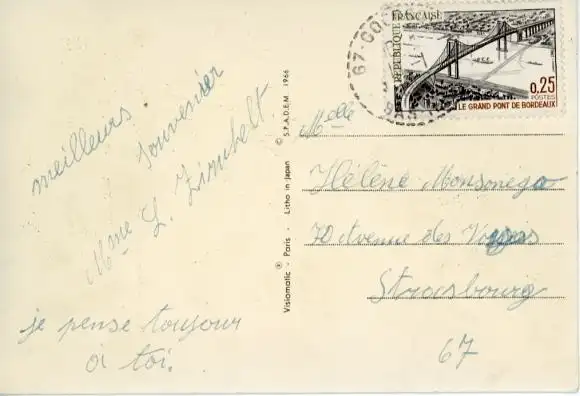 meilleurs
souvenier
Mme L. Zimbelt
je pense toujour
à toi.
Visiomatic ® - Paris - Litho in Japan © S.P.A.D.E.M 1966
67-GO
RÉPUBLIQUE FRANÇAISE
0,25
POSTES
LE GRAND PONT DE BORDEAUX
Melle
Hélène Monsonego
70 Avenue des Vosges
Strasbourg
67